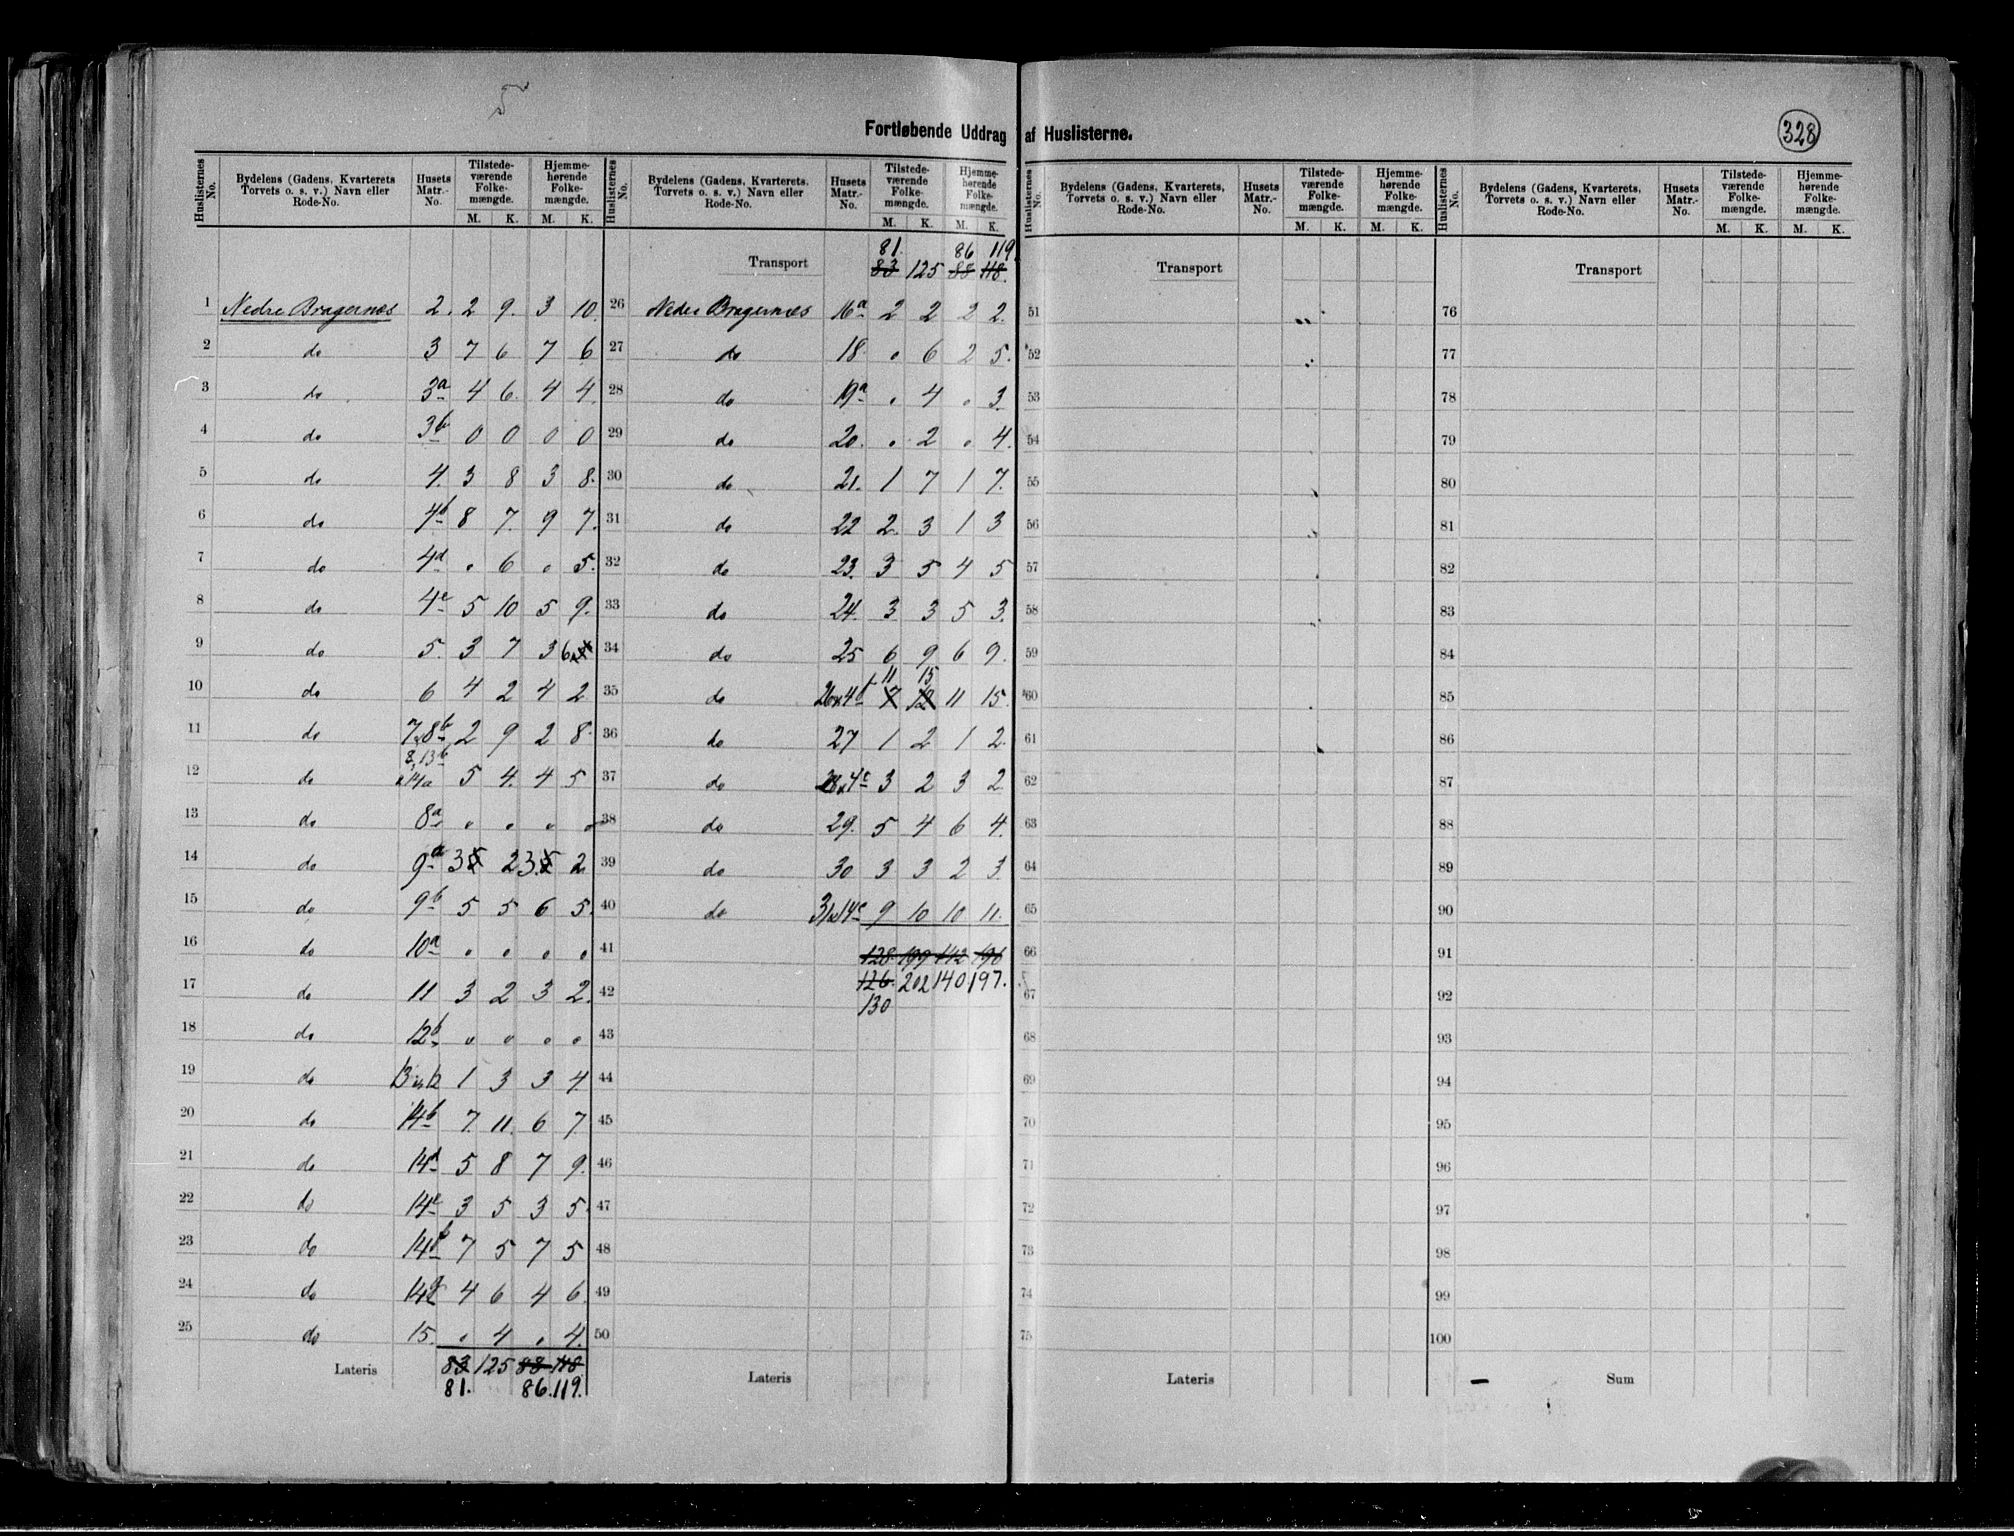 5
Fortløbende Uddrag af Huslisterne.
328
Huslisternes No. Bydelens (Gadens, Kvarterets Torvets o. s. v.) Navn eller Rode-No. Husets Matr.-No. Tilstedeværende Folkemængde. M. K. Hjemmehørende Folkemængde. M. K.
1 Nedre Bragernæs 2. 2 9. 3 10.
2 do 3 7 6 7 6
3 do 3a 4 6. 4 4.
4 do 3b 0 0 0 0
5 do 4. 3 8 3 8.
6 do 4b 8 7. 9 7.
7 do 4d „ 6 „ 5.
8 do 4e 5 10 5 9.
9 do 5. 3 7 3 6
10 do 6 4 2 4 2
11 do 7 & 8b 2 9 2 8.
12 do 8, 13b & 14a 5 4. 4 5
13 do 8a „ „ „ „
14 do 9a 3 5 2 3. 5 2
15 do 9b 5 5 6 5.
16 do 10a „ „ „ „
17 do 11 3 2 3 2.
18 do 12b „ „ „ „
19 do 13 & 12 1 3 3 4.
20 do 14b 7. 11. 6 7.
21 do 14d 5 8 7 9.
22 do 14e 3 5 3 5.
23 do 14f 7 5 7 5
24 do 14g 4 6 4 6.
25 do 15. „ 4 „ 4.
Lateris 83 125 88 118
81. 86. 119.
Huslisternes No. Bydelens (Gadens, Kvarterets, Torvets o. s. v.) Navn eller Rode-No. Husets Matr.-No. Tilstedeværende Folkemængde. M. K. Hjemmehørende Folkemængde. M. K.
81. 86 119.
Transport 83 125 88 118.
26 Nedre Bragernæs 16a 2 2 2 2.
27 do 18. „ 6 2 5.
28 do 19a „ 4 „ 3.
29 do 20. „ 2 „ 4.
30 do 21. 1 7 1 7.
31 do 22 2. 3 1 3
32 do 23. 3 5 4 5
33 do 24. 3. 3 5 3.
34 do 25 6 9 6 9.
11 15
35 do 26 & 4f 7 12 11 15.
36 do 27 1 2 1 2.
37 do 28 & 4c 3 2 3 2.
38 do 29. 5 4 6 4.
39 do 30 3 3 2 3.
40 do 31 & 14c 9 10 10 11.
41 128 199 142 196
42 126 202 140 197.
130
43
44
45
46
47
48
49
50
Lateris
Huslisternes No. Bydelens (Gadens, Kvarterets, Torvets o. s. v.) Navn eller Rode-No. Husets Matr.-No. Tilstedeværende Folkemængde. M. K. Hjemmehørende Folkemængde. M. K.
Transport
51
52
53
54
55
56
57
58
59
60
61
62
63
64
65
66
67
68
69
70
71
72
73
74
75
Lateris
Huslisternes No. Bydelens (Gadens, Kvarterets, Torvets o. s. v.) Navn eller Rode-No. Husets Matr.-No. Tilstedeværende Folkemængde. M. K. Hjemmehørende Folkemængde. M. K.
Transport
76
77
78
79
80
81
82
83
84
85
86
87
88
89
90
91
92
93
94
95
96
97
98
99
100
Sum